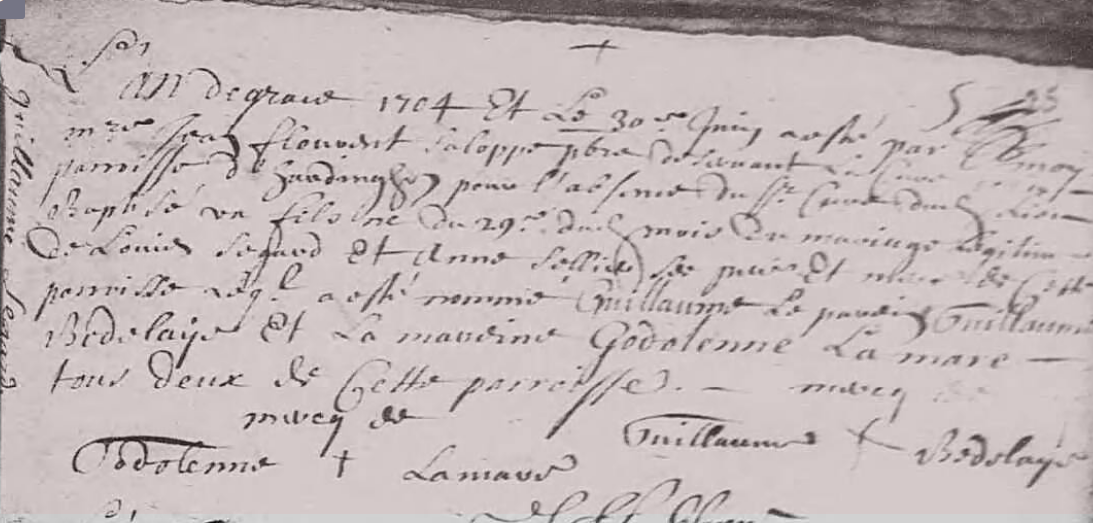 L'An de grace 1704 Et Le 30me Juin a esté par moy
mre Jean flouvent Saloppe pbre deservant La Cure
parroisse d'hardinghen pour l'absence du Sr Cure dud Lieu
Baptisé un fils né du 29me dud mois du mariage legitime
De Louis Segard Et Anne Sellier ses pere Et mere de Cette
parroisse Leql a esté nommé Guillaume Le parein Guillaume
Bedelaye Et La mareine Godolenne La mare —
tous deux de Cette parroisse. — marcq de
marcq de
Guillaume + Bedelaye
Godolenne + Lamare
Guillaume Segard
25